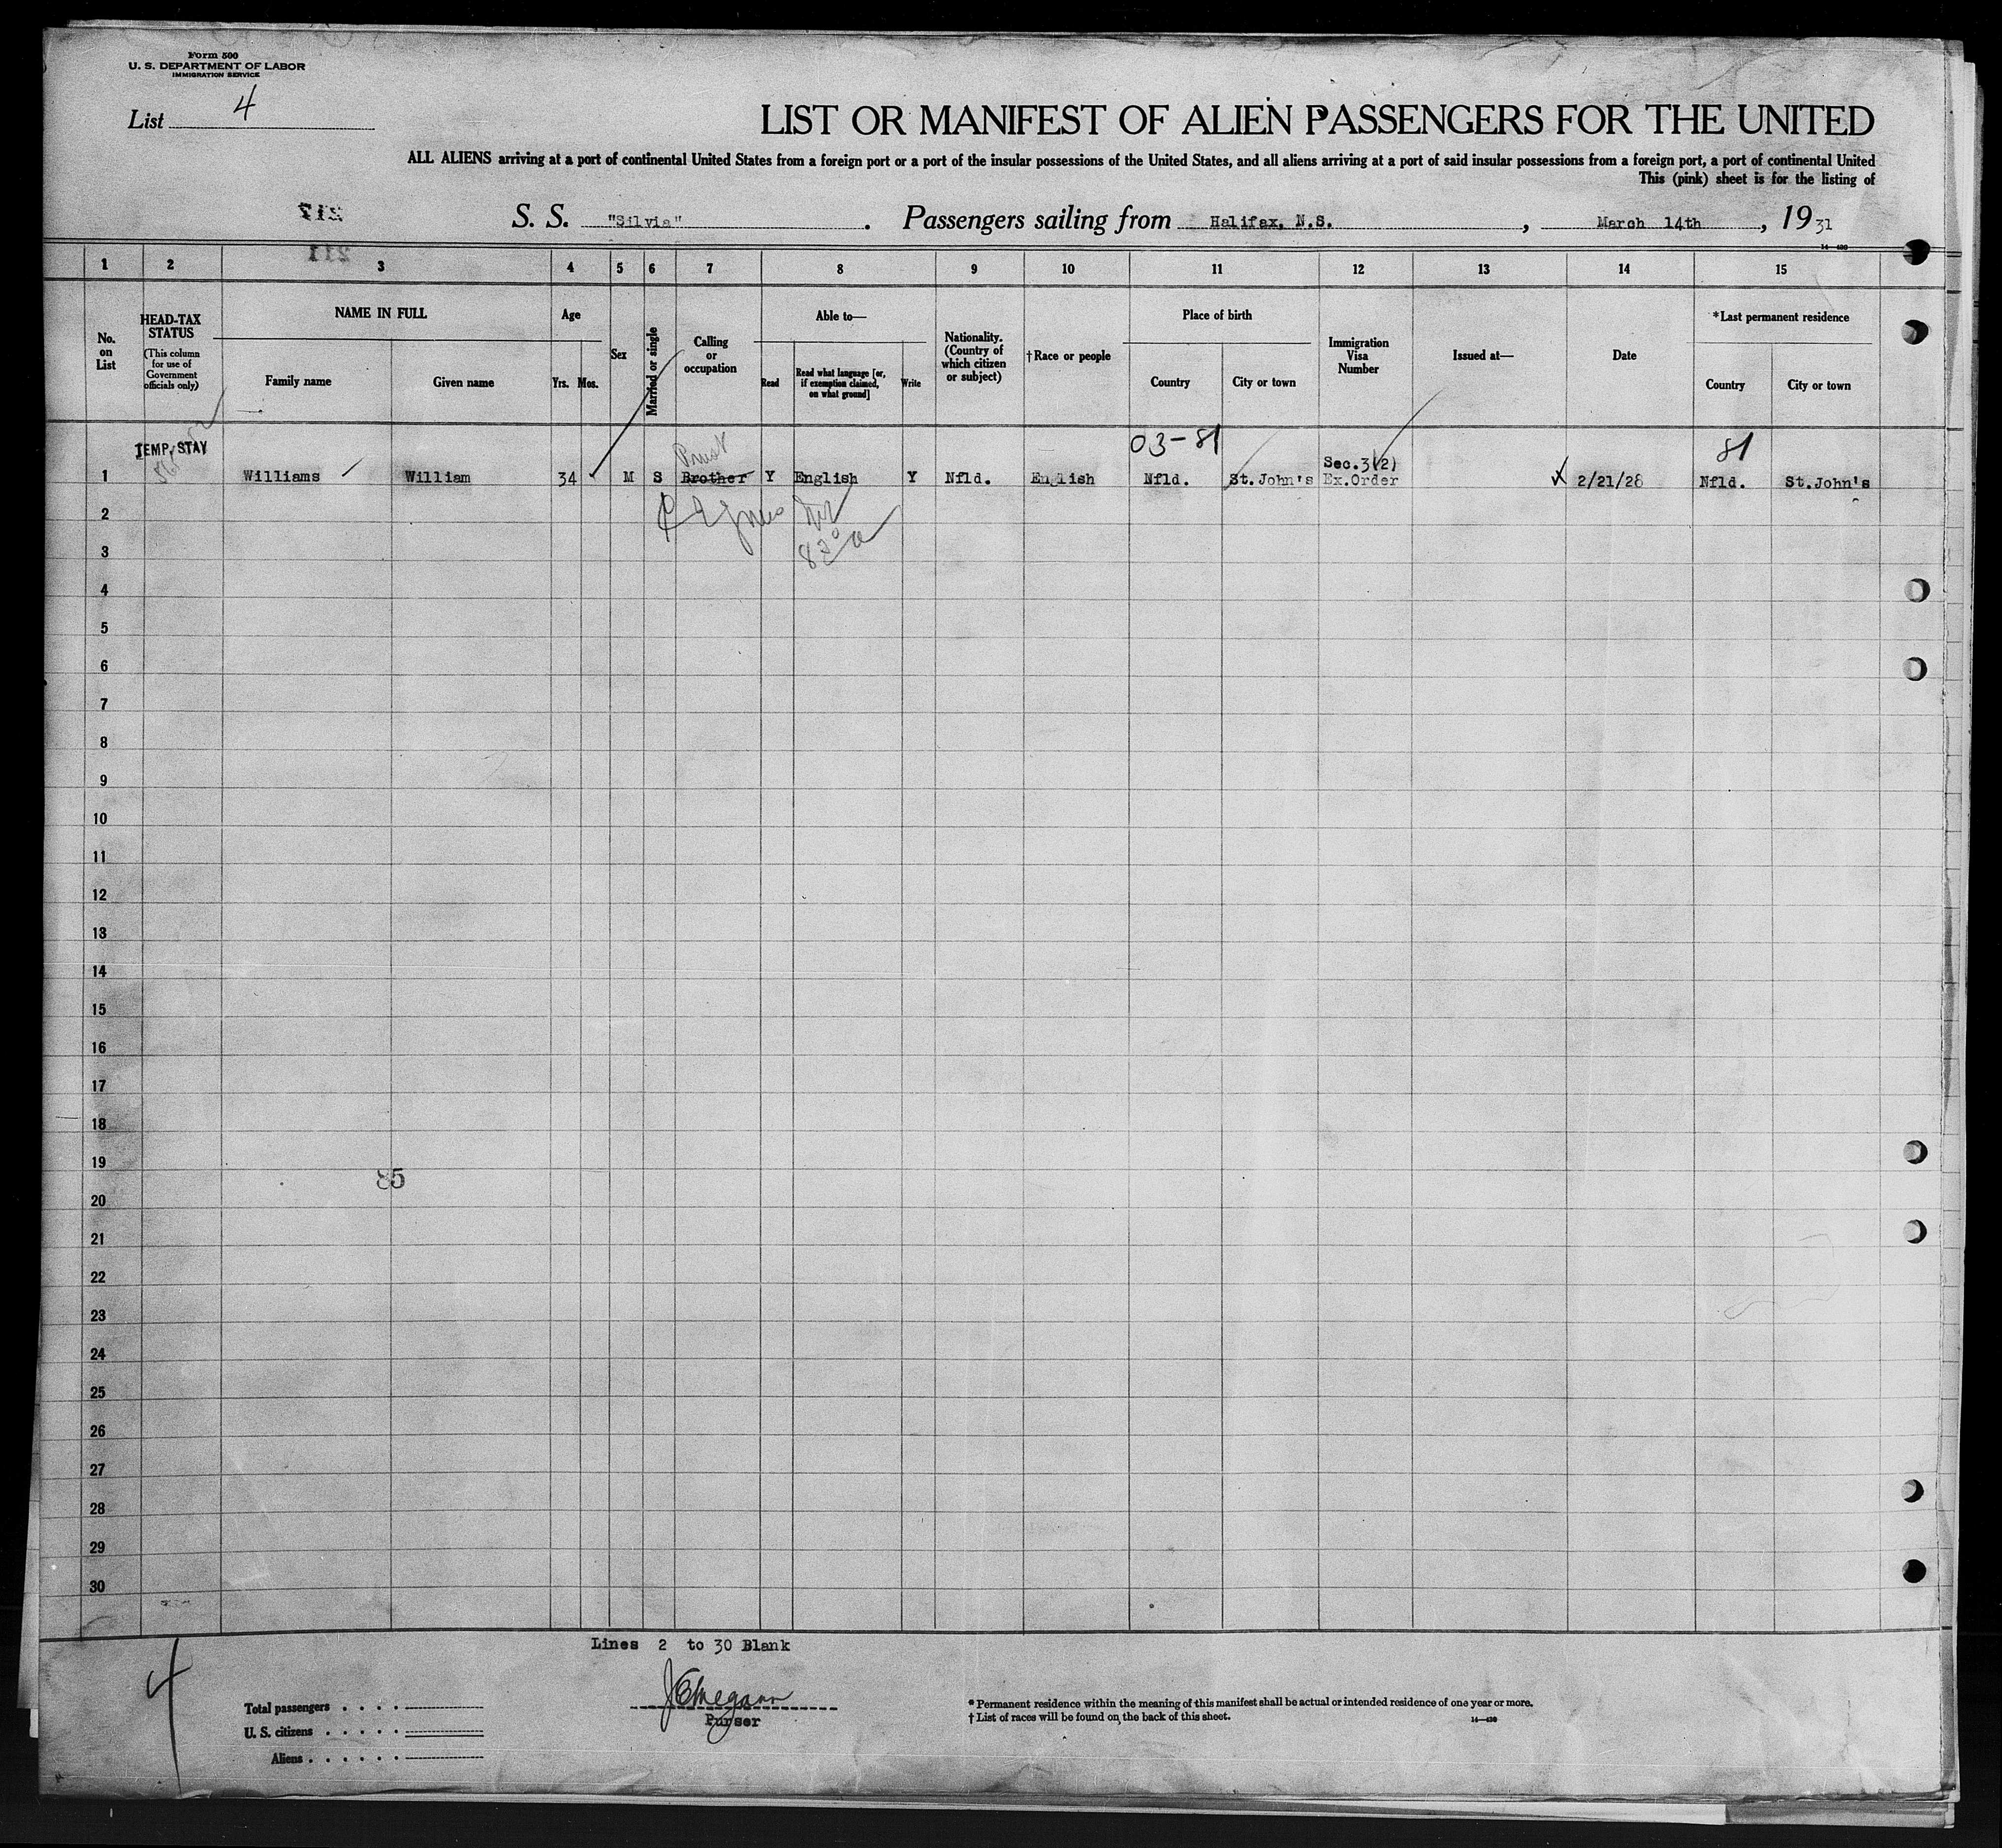 Form 500
U. S. DEPARTMENT OF LABOR
IMMIGRATION SERVICE
List 4
LIST OR MANIFEST OF ALIEN PASSENGERS FOR THE UNITED
ALL ALIENS arriving at a port of continental United States from a foreign port or a port of the insular possessions of the United States, and all aliens arriving at a port of said insular possessions from a foreign port, a port of continental United
This (pink) sheet is for the listing of
S. S. "Silvia". Passengers sailing from Halifax, N.S., March 14th, 1931
1 2 3 4 5 6 7 8 9 10 11 12 13 14 15
No. on List
HEAD-TAX STATUS
(This column for use of Government officials only)
NAME IN FULL
Family name
Given name
Age
Yrs. Mos.
Sex
Married or single
Calling or occupation
Able to—
Read
Read what language [or, if exemption claimed, on what ground]
Write
Nationality. (Country of which citizen or subject)
†Race or people
Place of birth
Country
City or town
Immigration Visa Number
Issued at—
Date
*Last permanent residence
Country
City or town
03-81
81
TEMP. STAY
Sec.3(2)
1 Williams William 34 M S Brother Y English Y Nfld. English Nfld. St.John's Ex.Order 2/21/28 Nfld. St.John's
2
3
4
5
6
7
8
9
10
11
12
13
14
15
16
17
18
19
85
20
21
22
23
24
25
26
27
28
29
30
Lines 2 to 30 Blank
4
Total passengers
U. S. citizens
Aliens
Purser
* Permanent residence within the meaning of this manifest shall be actual or intended residence of one year or more.
† List of races will be found on the back of this sheet.